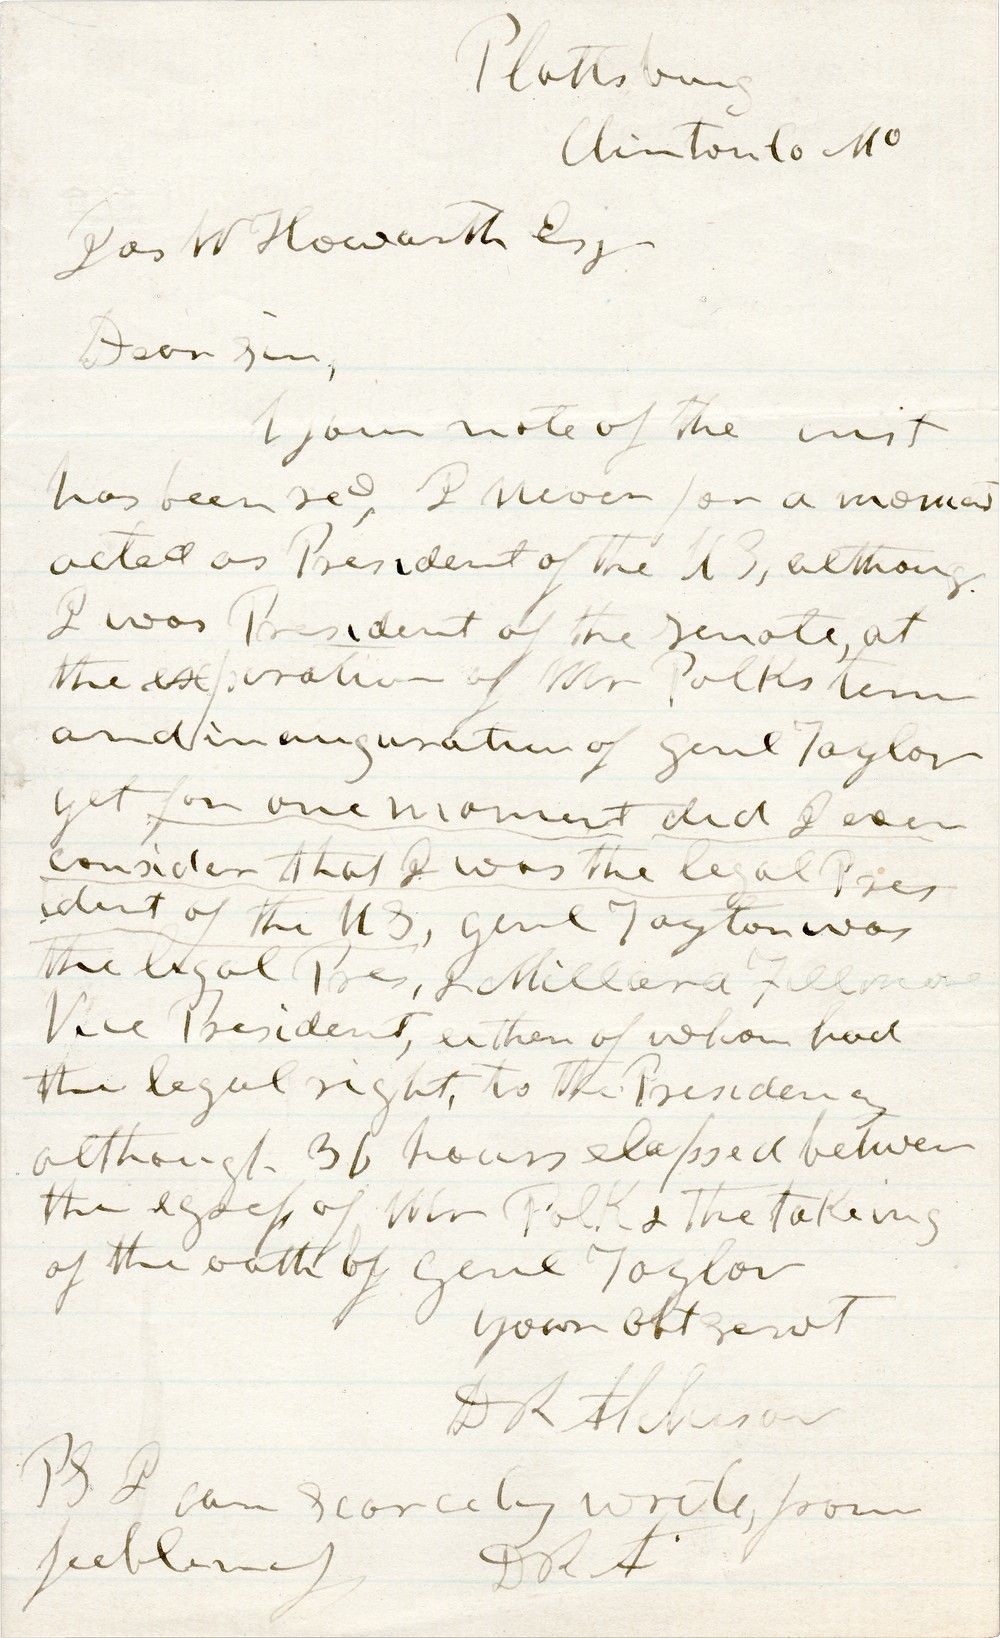 Plattsburg
Clinton Co Mo
Jas W Howarth Esq
Dear Sir,
Your note of the inst
has been recd, I never for a moment
acted as President of the US, althoug
I was President of the Senate, at
the expiration of Mr Polks term
and inauguration of Genl Taylor
yet for one moment did I ever
consider that I was the legal Pres
ident of the US, Genl Taylor was
the legal Pres, & Millard Fillmore
Vice President, either of whom had
the legal right, to the Presidency
although 36 hours elapsed between
the egress of Mr Polk & the takeing
of the oath by Genl Taylor
your obt servt
D R Atchison
PS I can scarcely write, from
feebleness D R A